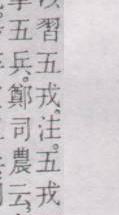 習五戎。注。五戎
五兵。鄭司農云、